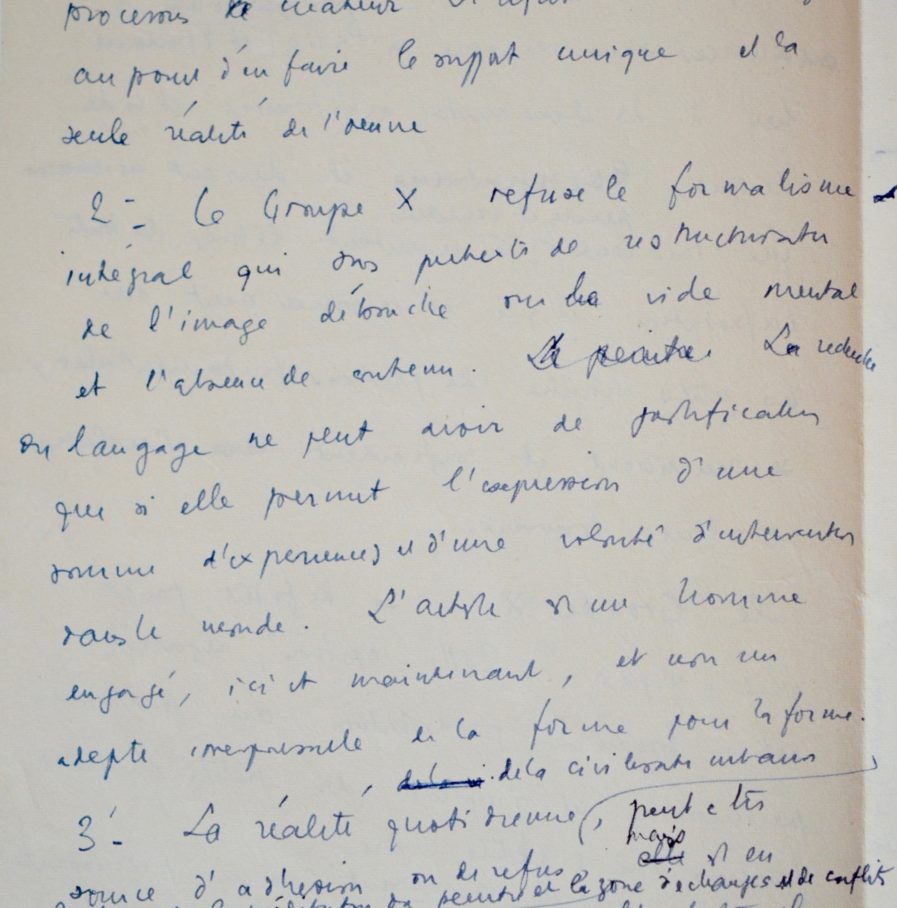 processus de créateur
au point d'en faire le support unique et la
seule réalité de l'oeuvre
2°- Le Groupe X refuse le formalisme
intégral qui sous prétexte de restructuration
de l'image débouche sur le vide mental
et l'absence de contenu. La peinture La recherche
du langage ne peut avoir de justification
que si elle permet l'expression d'une
somme d'expériences et d'une volonté d'intervention
dans le monde. L'artiste est un homme
engagé, ici et maintenant, et non un
adepte irresponsable de la forme pour la forme.
de la civilisation urbaine
3°- La réalité quotidienne, peut être
mais
source d'adhésion ou de refus elle est en
du peintre et la zone d'échanges et de conflits